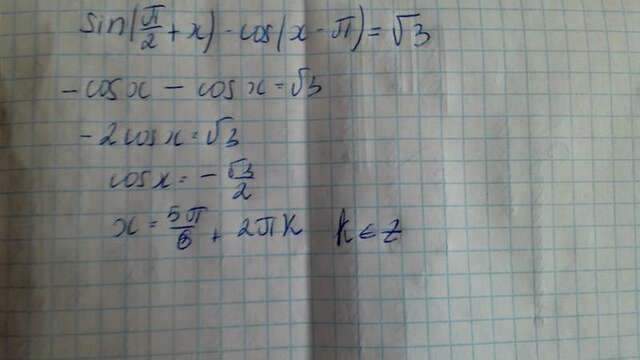 sin(π/2 + x) - cos(x - π) = √3
- cos x - cos x = √3
- 2 cos x = √3
cos x = - √3/2
x = 5π/6 + 2πk k ∈ Z